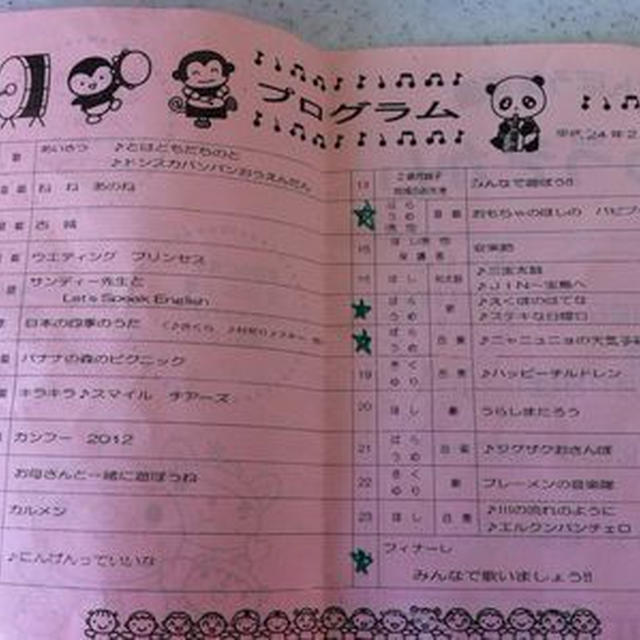 プログラム
平成24年2
あいさつ ♪ともだちのと
♪ドンスカパンパンおうえんだん
ね ね あのね
古城
ウエディング プリンセス
サンディー先生と
Let's Speak English
日本の四季のうた
バナナの森のピクニック
キラキラ♪スマイル チアーズ
カンフー 2012
お母さんと一緒に遊ぼうね
カルメン
♪にんげんっていいな
13 みんなで遊ぼう!!
ばら うめ おもちゃのほしの ハピフ
15 音楽部
ほし 和太鼓 ♪三宝太鼓
♪JIN〜宝島へ
ばら うめ 歌 ♪えくぼのはてな
♪ステキな日曜日
ばら うめ ♪ニャニュニョの天気予
19 きく ゆり ♪ハッピーチルドレン
20 ほし 劇 うらしまたろう
21 ばら うめ ♪ジグザグおさんぽ
22 きく ゆり 劇 ブレーメンの音楽隊
23 ほし ♪川の流れのように
♪エルクンバンチェロ
フィナーレ
みんなで歌いましょう!!